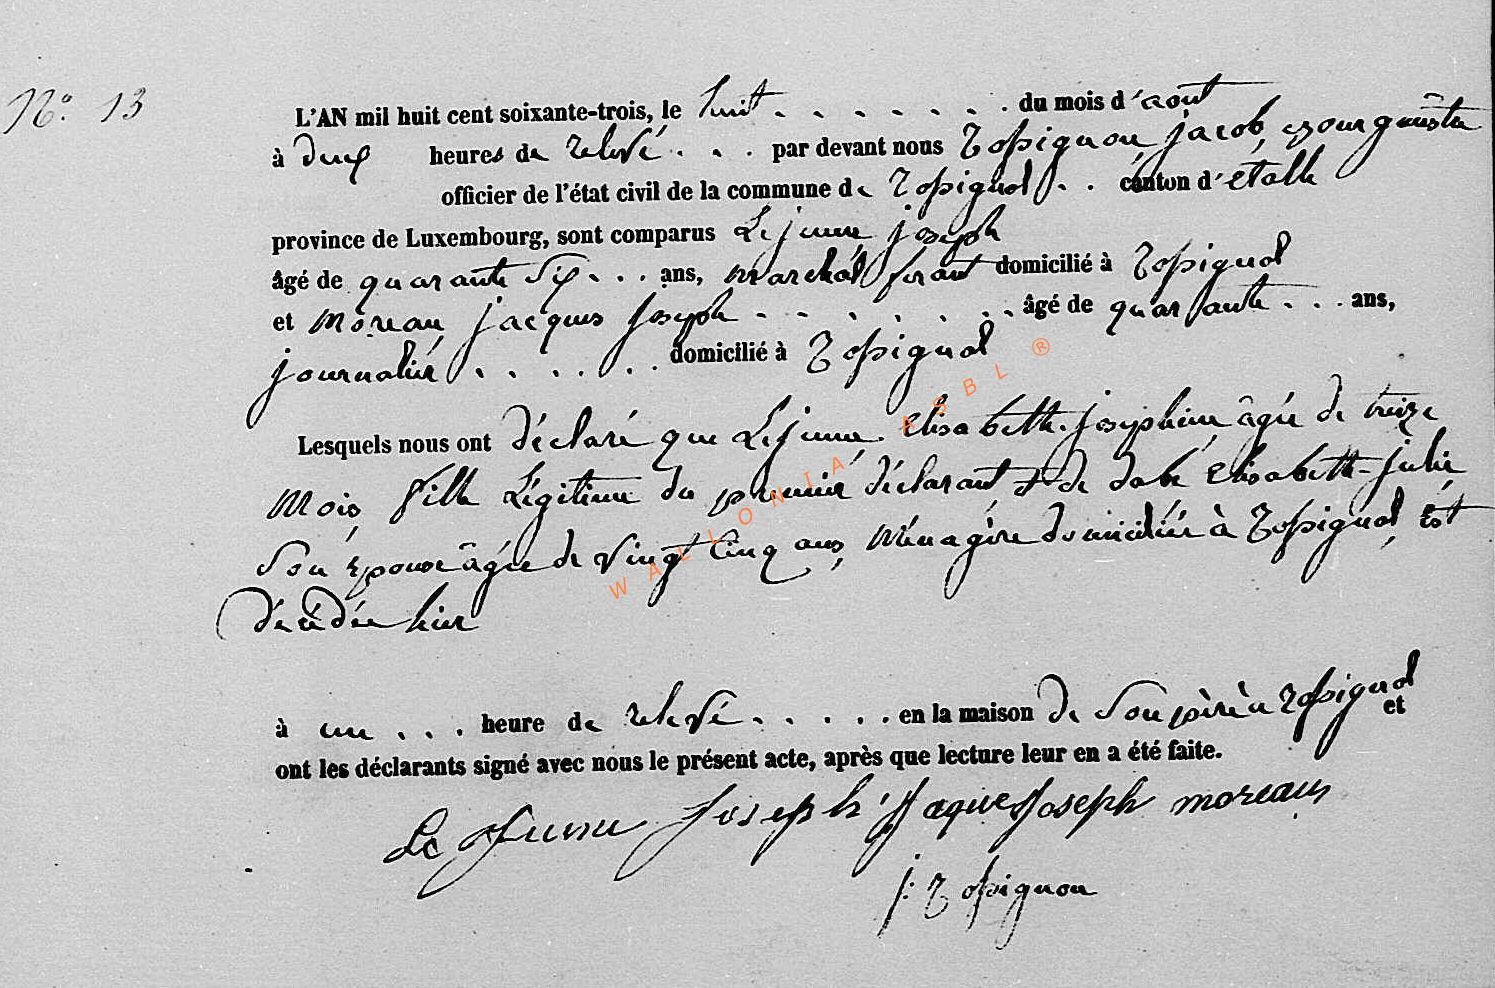 N° 13
L'AN mil huit cent soixante-trois, le huit . . . . . . . du mois d'août
à deux heures de relevé . . . par devant nous Rossignon, jacob, Bourgmestre
officier de l'état civil de la commune de Rossignol . . canton d'etalle
province de Luxembourg, sont comparus Lejeune, joseph
âgé de quarante Six . . . ans, marchal ferant domicilié à Rossignol
et moreau, jacques joseph . . . . . . . âgé de quarante . . . ans,
journalier . . . . . . domicilié à Rossignol
Lesquels nous ont déclaré que Lejeune Elisabeth-josephine âgée de treize
Mois, fille Légitime du premier déclarant & de Elisabeth-julie,
Son Epouse âgée de Vingt Cinq ans, Ménagère domiciliée à Rossignol, Est
décédée hier
à une . . . heure de relevé . . . . . en la maison de Son père à Rossignol et
ont les déclarants signé avec nous le présent acte, après que lecture leur en a été faite.
Le Jeune Joseph Jaque Joseph moreaux
j: Rossignon
WALLONIA ASBL ®